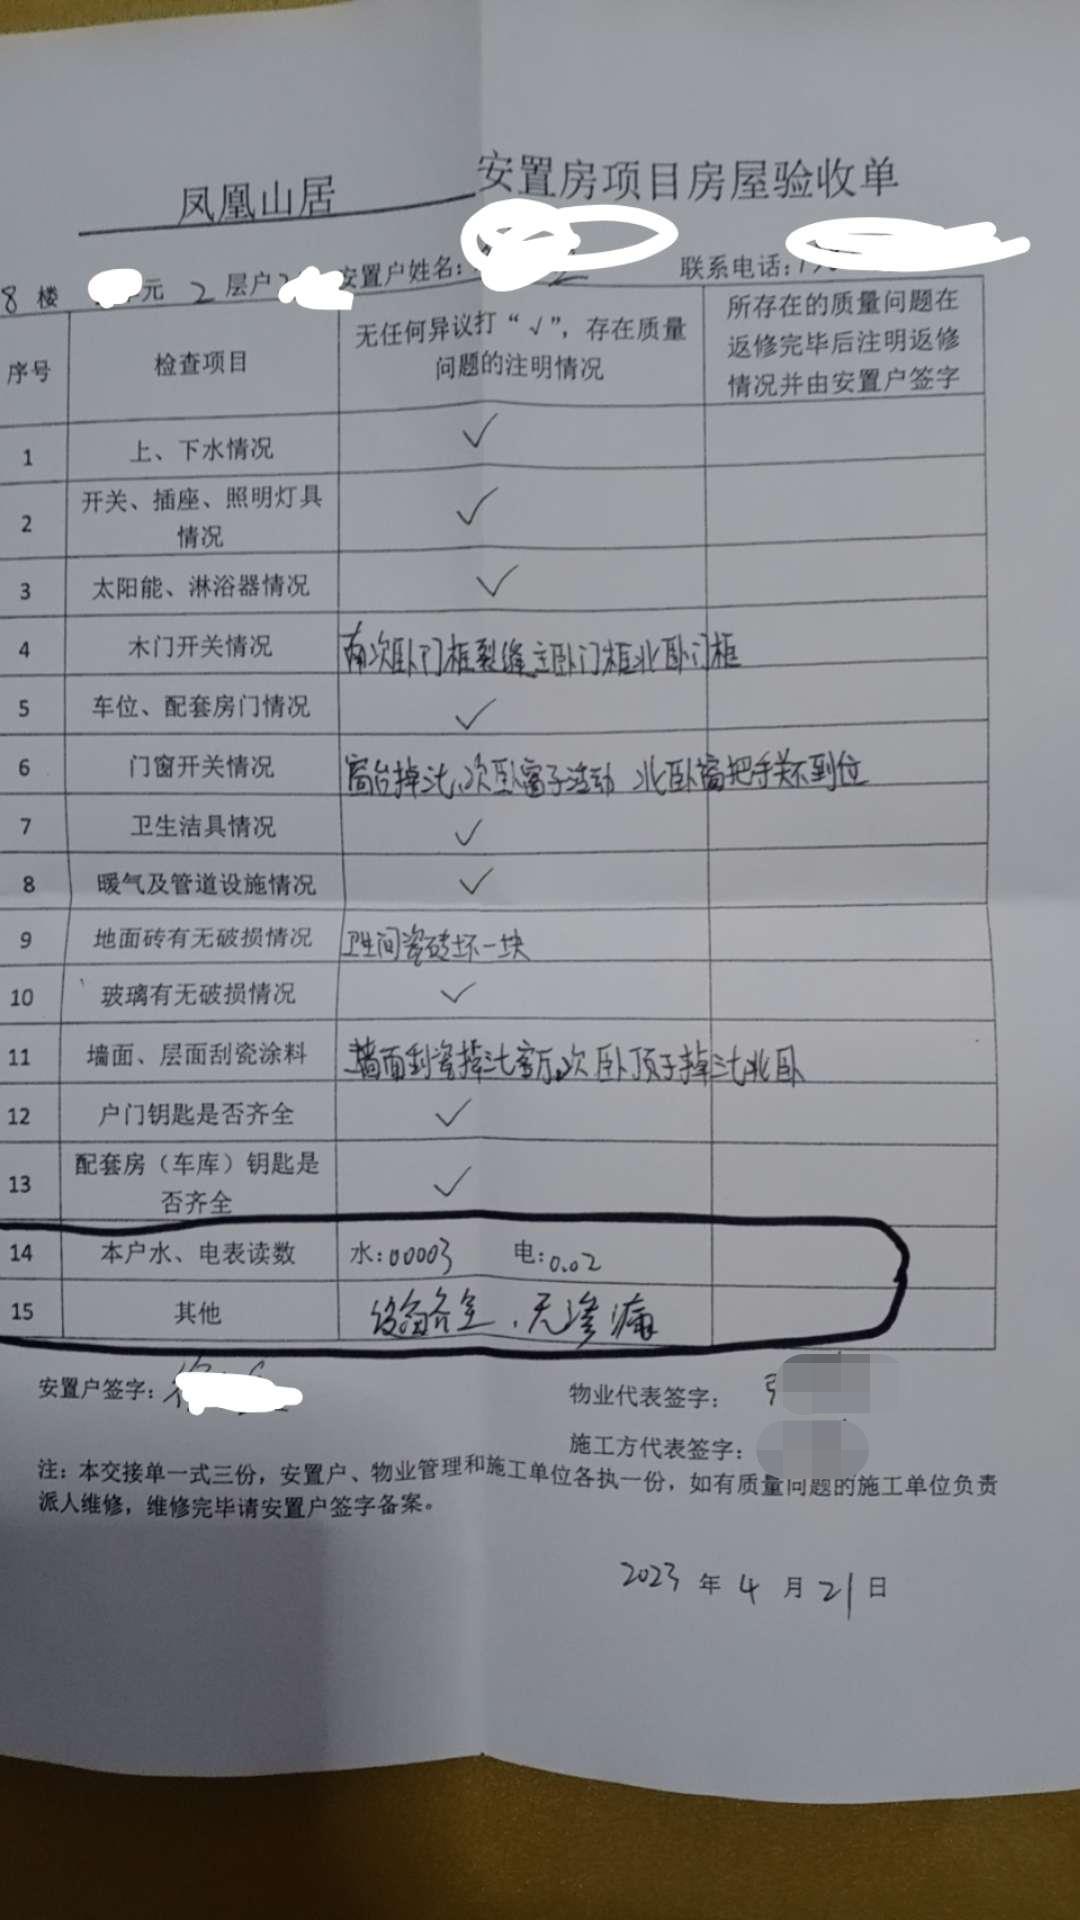 凤凰山居 安置房项目房屋验收单
8 楼 元 2 层户 安置户姓名: 联系电话:
序号 检查项目 无任何异议打“√”，存在质量问题的注明情况 所存在的质量问题在返修完毕后注明返修情况并由安置户签字
1 上、下水情况 √
2 开关、插座、照明灯具情况 √
3 太阳能、淋浴器情况 √
4 木门开关情况 南次卧门框裂缝 主卧门框北卧门框
5 车位、配套房门情况 √
6 门窗开关情况 窗台掉汰、次卧窗子活动 北卧窗把手关不到位
7 卫生洁具情况 √
8 暖气及管道设施情况 √
9 地面砖有无破损情况 卫生间瓷砖坏一块
10 玻璃有无破损情况 √
11 墙面、层面刮瓷涂料 墙面刮瓷掉汰客厅、次卧顶子掉汰北卧
12 户门钥匙是否齐全 √
13 配套房（车库）钥匙是否齐全 √
14 本户水、电表读数 水:00003 电:0.02
15 其他 设备齐全，无渗漏
安置户签字: 物业代表签字:
施工方代表签字:
注: 本交接单一式三份，安置户、物业管理和施工单位各执一份，如有质量问题的施工单位负责
派人维修，维修完毕请安置户签字备案。
2023 年 4 月 21 日